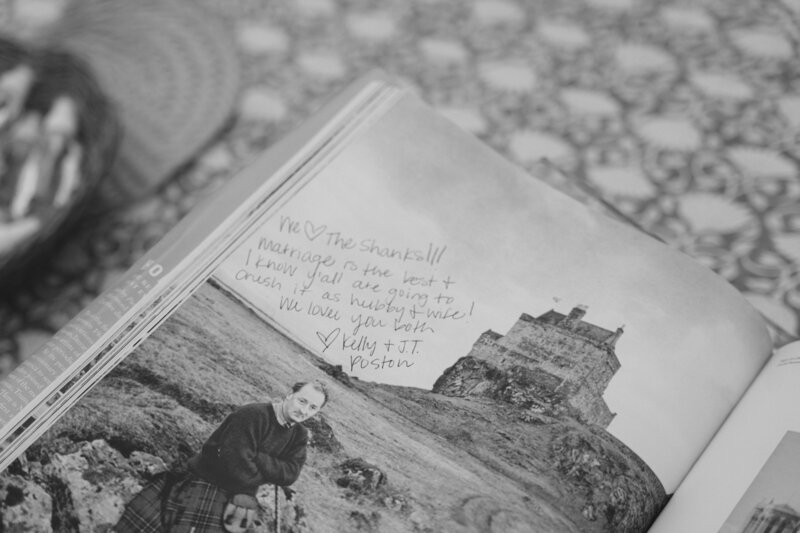 We ♡ The Shanks!!!
Marriage is the best +
I know y'all are going to
crush it as hubby & wife!
We love you both
♡ Kelly + J.T.
Poston